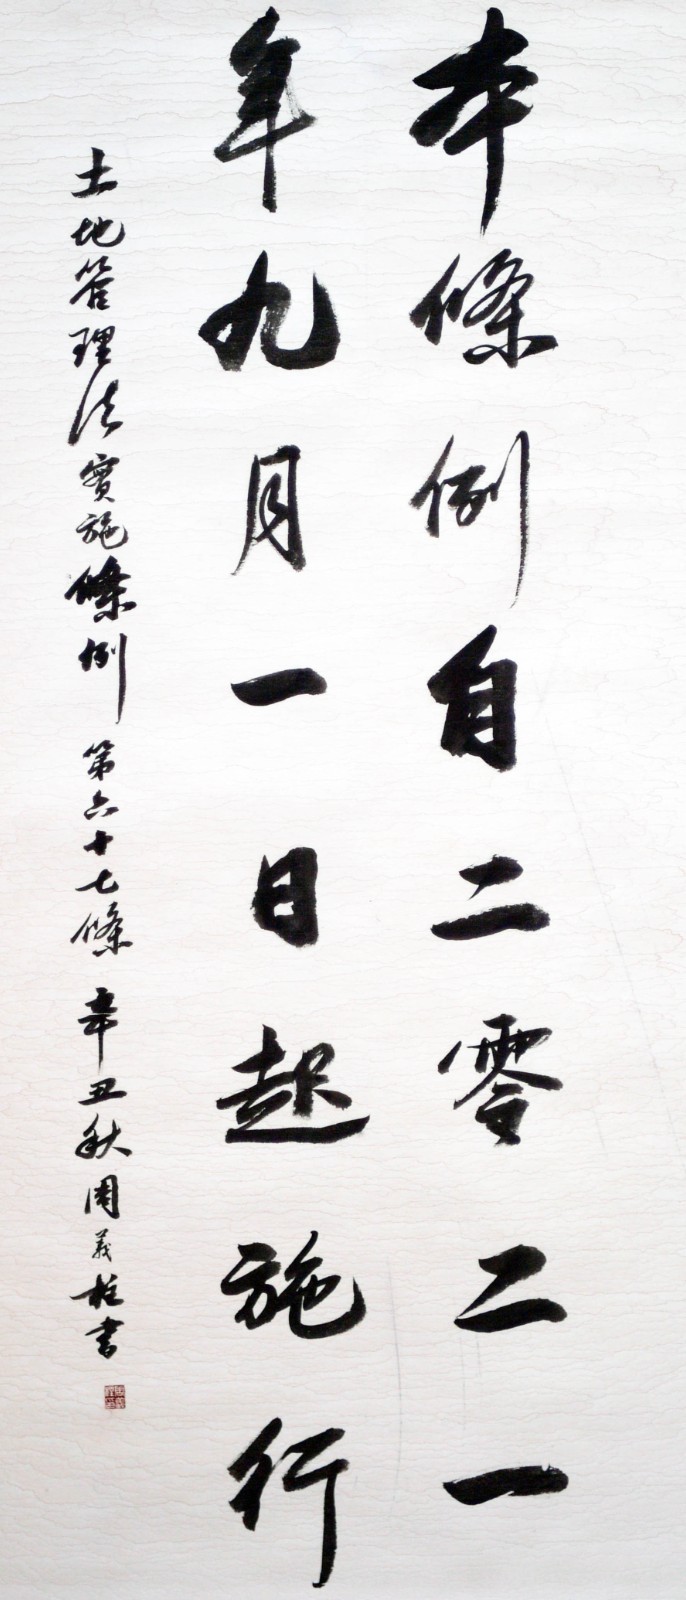 本條例自二零二一
年九月一日起施行
土地管理法實施條例 第六十七條 辛丑秋 周義
書